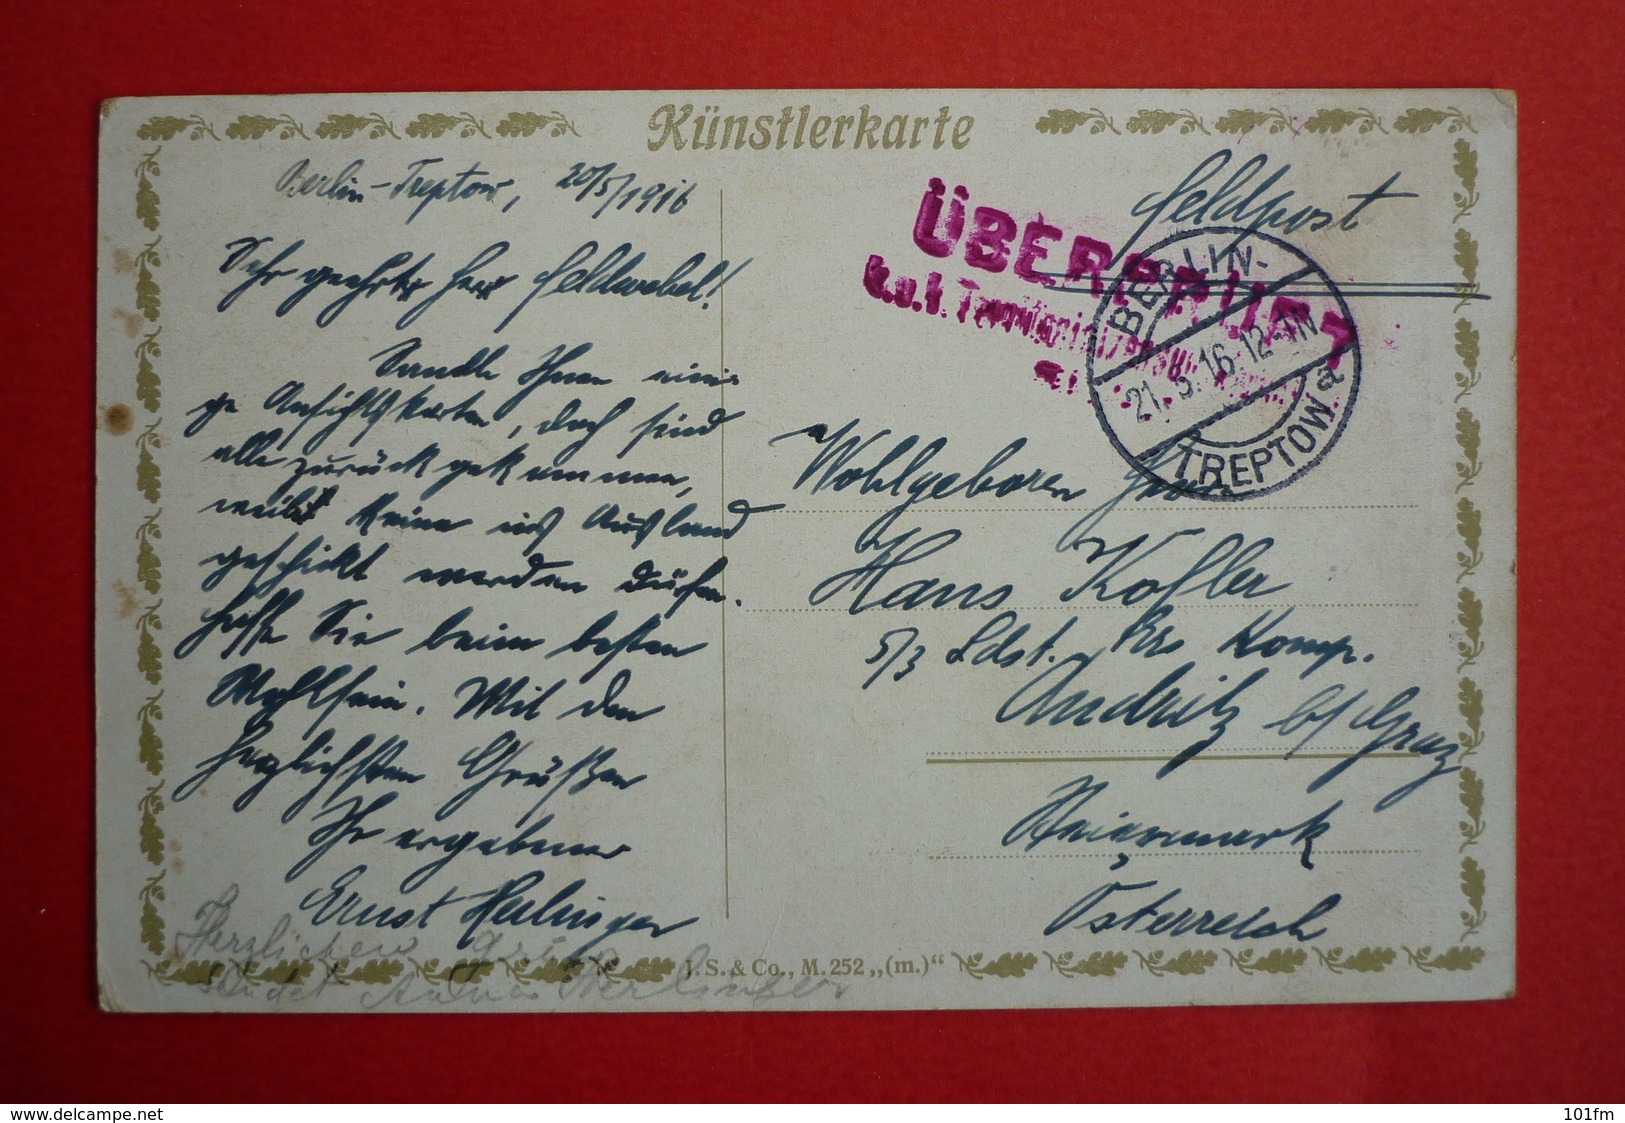 Künstlerkarte
Berlin-Treptow, 20/5/1916
Sehr geehrter Herr Feldwebel!
Sandte Ihnen eini-
ge Ansichtskarten, doch sind
alle zurückgekommen,
weil keine ins Ausland
geschickt werden dürfen.
Hoffe Sie beim besten
Wohlsein. Mit den
herzlichsten Grüßen
Ihr ergebener
Ernst
Herzlichen
Feldpost
ÜBERPRÜFT
k.u.k. Territorial
BERLIN-
21.5.16.12-1N
TREPTOW a
Wohlgeboren Herrn
Hans Kofler
5/3 Ldst. Komp.
Andritz b/Graz
Steiermark
Österreich
J. S. & Co., M. 252 „(m.)“
www.delcampe.net
101fm